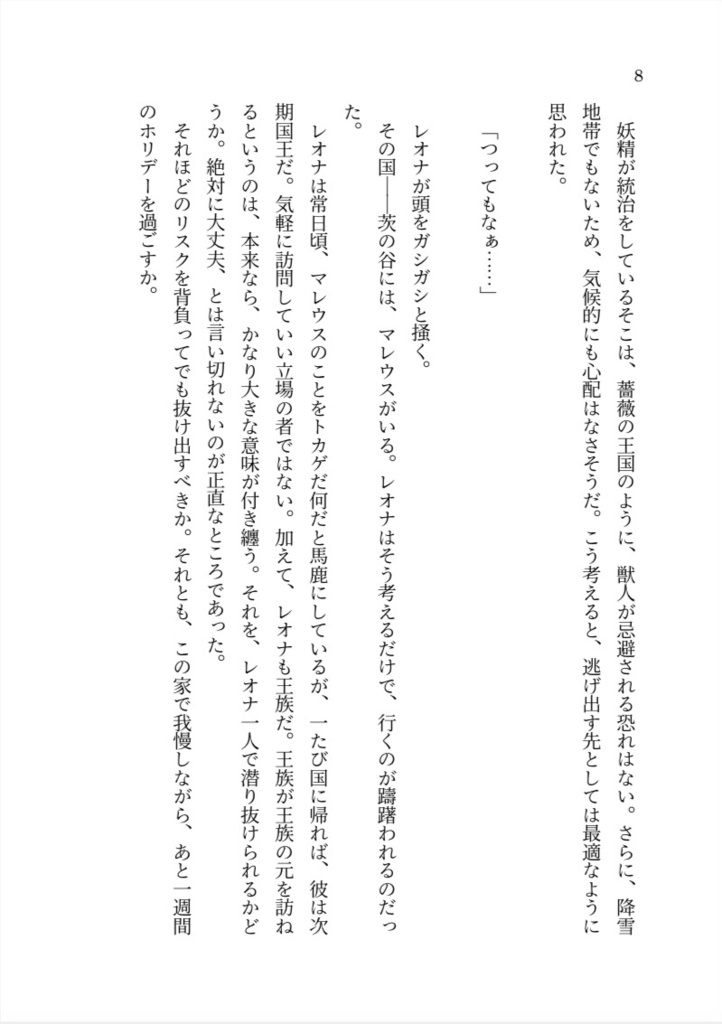 8
　妖精が統治をしているそこは、薔薇の王国のように、獣人が忌避される恐れはない。さらに、降雪
地帯でもないため、気候的にも心配はなさそうだ。こう考えると、逃げ出す先としては最適なように
思われた。
「つってもなぁ……」
　レオナが頭をガシガシと掻く。
　その国――茨の谷には、マレウスがいる。レオナはそう考えるだけで、行くのが躊躇われるのだっ
た。
　レオナは常日頃、マレウスのことをトカゲだ何だと馬鹿にしているが、一たび国に帰れば、彼は次
期国王だ。気軽に訪問していい立場の者ではない。加えて、レオナも王族だ。王族が王族の元を訪ね
るというのは、本来なら、かなり大きな意味が付き纏う。それを、レオナ一人で潜り抜けられるかど
うか。絶対に大丈夫、とは言い切れないのが正直なところであった。
　それほどのリスクを背負ってでも抜け出すべきか。それとも、この家で我慢しながら、あと一週間
のホリデーを過ごすか。